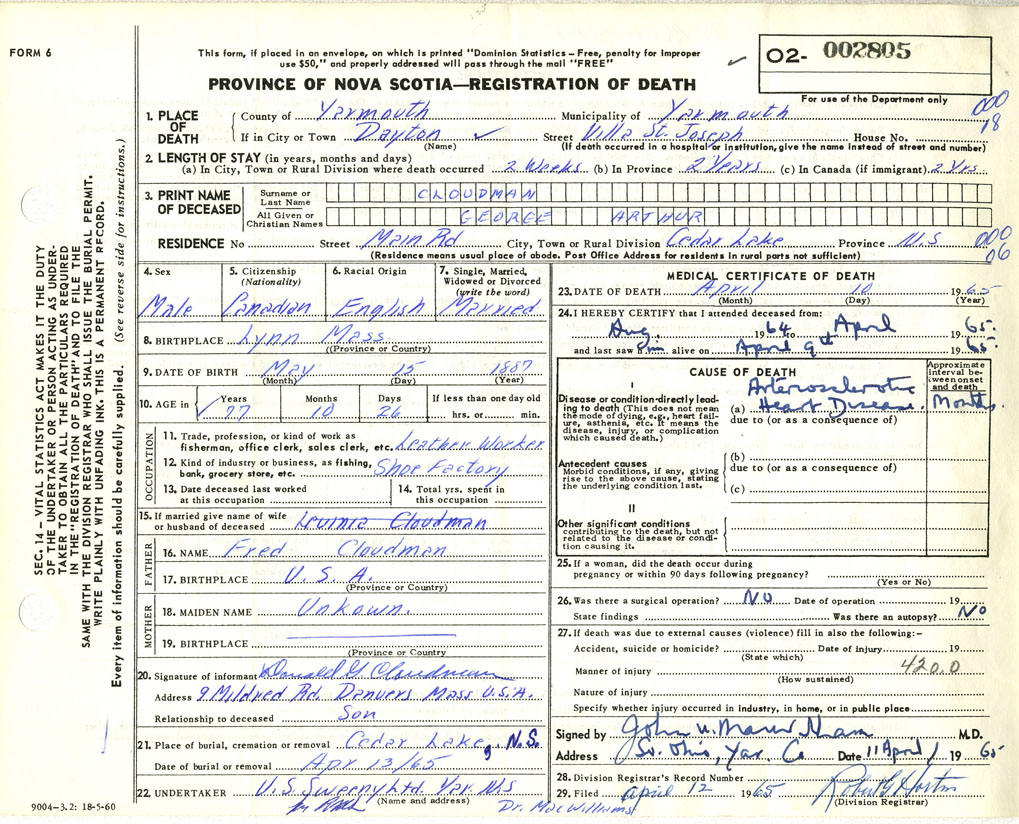 FORM 6
This form, if placed in an envelope, on which is printed "Dominion Statistics – Free, penalty for improper
use $50," and properly addressed will pass through the mail "FREE"
✓ O2- 002805
PROVINCE OF NOVA SCOTIA—REGISTRATION OF DEATH
For use of the Department only
000
18
1. PLACE OF DEATH
County of Yarmouth Municipality of Yarmouth
If in City or Town Dayton ✓ Street Villa St. Joseph House No.
(Name) (If death occurred in a hospital or institution, give the name instead of street and number)
2. LENGTH OF STAY (in years, months and days)
(a) In City, Town or Rural Division where death occurred 2 Weeks (b) In Province 2 Years (c) In Canada (if immigrant) 2 Yrs
3. PRINT NAME OF DECEASED
Surname or Last Name CLOUDMAN
All Given or Christian Names GEORGE ARTHUR
RESIDENCE No Street Main Rd City, Town or Rural Division Cedar Lake Province N.S
(Residence means usual place of abode. Post Office Address for residents in rural parts not sufficient)
000
06
4. Sex
Male
5. Citizenship
(Nationality)
Canadian
6. Racial Origin
English
7. Single, Married,
Widowed or Divorced
(write the word)
Married
8. BIRTHPLACE Lynn Mass
(Province or Country)
9. DATE OF BIRTH May 15 1887
(Month) (Day) (Year)
10. AGE in Years Months Days If less than one day old
77 10 26 hrs. or min.
OCCUPATION
11. Trade, profession, or kind of work as
fisherman, office clerk, sales clerk, etc. Leather Worker
12. Kind of industry or business, as fishing,
bank, grocery store, etc. Shoe Factory
13. Date deceased last worked
at this occupation
14. Total yrs. spent in
this occupation
15. If married give name of wife
or husband of deceased Cloudman
FATHER
16. NAME Fred Cloudman
17. BIRTHPLACE U.S.A.
(Province or Country)
MOTHER
18. MAIDEN NAME Unkown.
19. BIRTHPLACE
(Province or Country)
20. Signature of informant Donald G Cloudman
Address 9 Mildred Rd. Danvers Mass U.S.A.
Relationship to deceased Son
21. Place of burial, cremation or removal Cedar Lake, N.S.
Date of burial or removal Apr 13/65
22. UNDERTAKER U.S. Sweeny Ltd. Yar. N.S
(Name and address)
Dr. MacWilliams
MEDICAL CERTIFICATE OF DEATH
23. DATE OF DEATH April 10 1965
(Month) (Day) (Year)
24. I HEREBY CERTIFY that I attended deceased from:
Aug 1964 to April 1965.
and last saw him alive on April 9th 1965.
CAUSE OF DEATH
Approximate
interval be-
tween onset
and death
I
Disease or condition directly lead-
ing to death (This does not mean
the mode of dying, e.g., heart fail-
ure, asthenia, etc. It means the
disease, injury, or complication
which caused death.)
(a) Arteriosclerotic
Heart Disease. Months.
due to (or as a consequence of)
Antecedent causes
Morbid conditions, if any, giving
rise to the above cause, stating
the underlying condition last.
(b)
due to (or as a consequence of)
(c)
II
Other significant conditions
contributing to the death, but not
related to the disease or condi-
tion causing it.
25. If a woman, did the death occur during
pregnancy or within 90 days following pregnancy?
(Yes or No)
26. Was there a surgical operation? No Date of operation 19
State findings Was there an autopsy? No
27. If death was due to external causes (violence) fill in also the following:–
Accident, suicide or homicide? Date of injury 19
(State which)
420.0
Manner of injury
(How sustained)
Nature of injury
Specify whether injury occurred in industry, in home, or in public place
Signed by John M.D.
Address So. Ohio, Yar. Co Date 11 April 1965
28. Division Registrar's Record Number
29. Filed April 12 1965
(Division Registrar)
SEC. 14 – VITAL STATISTICS ACT MAKES IT THE DUTY
OF THE UNDERTAKER OR PERSON ACTING AS UNDER-
TAKER TO OBTAIN ALL THE PARTICULARS REQUIRED
IN THE "REGISTRATION OF DEATH" AND TO FILE THE
SAME WITH THE DIVISION REGISTRAR WHO SHALL ISSUE THE BURIAL PERMIT.
WRITE PLAINLY WITH UNFADING INK. THIS IS A PERMANENT RECORD.
Every item of information should be carefully supplied. (See reverse side for instructions.)
9004–3.2: 18-5-60